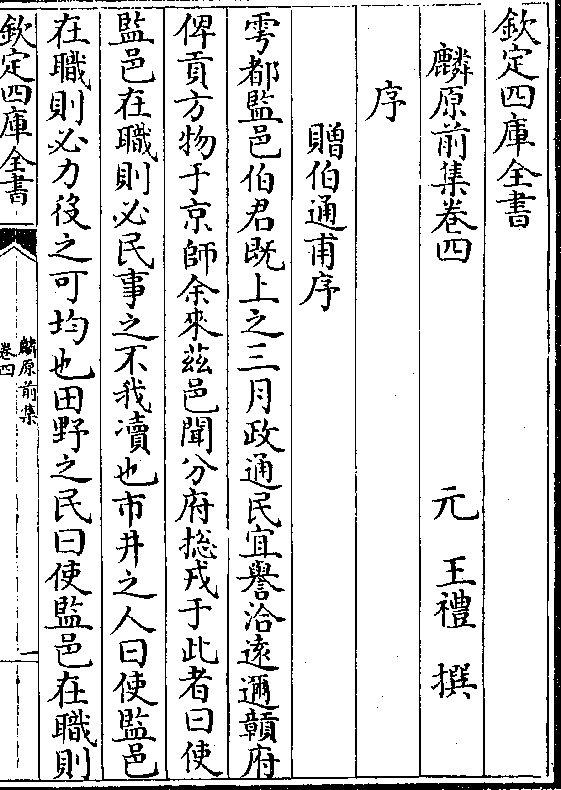 欽定四庫全書
麟原前集卷四
元 王禮 撰
序
贈伯通甫序
雩都監邑伯君既上之三月政通民宜譽洽遠邇贛府
俾貢方物于京師余來茲邑聞分府揔戎于此者曰使
監邑在職則必民事之不我瀆也市井之人曰使監邑
在職則必力役之可均也田野之民曰使監邑在職則
欽定四庫全書
麟原前集
卷四